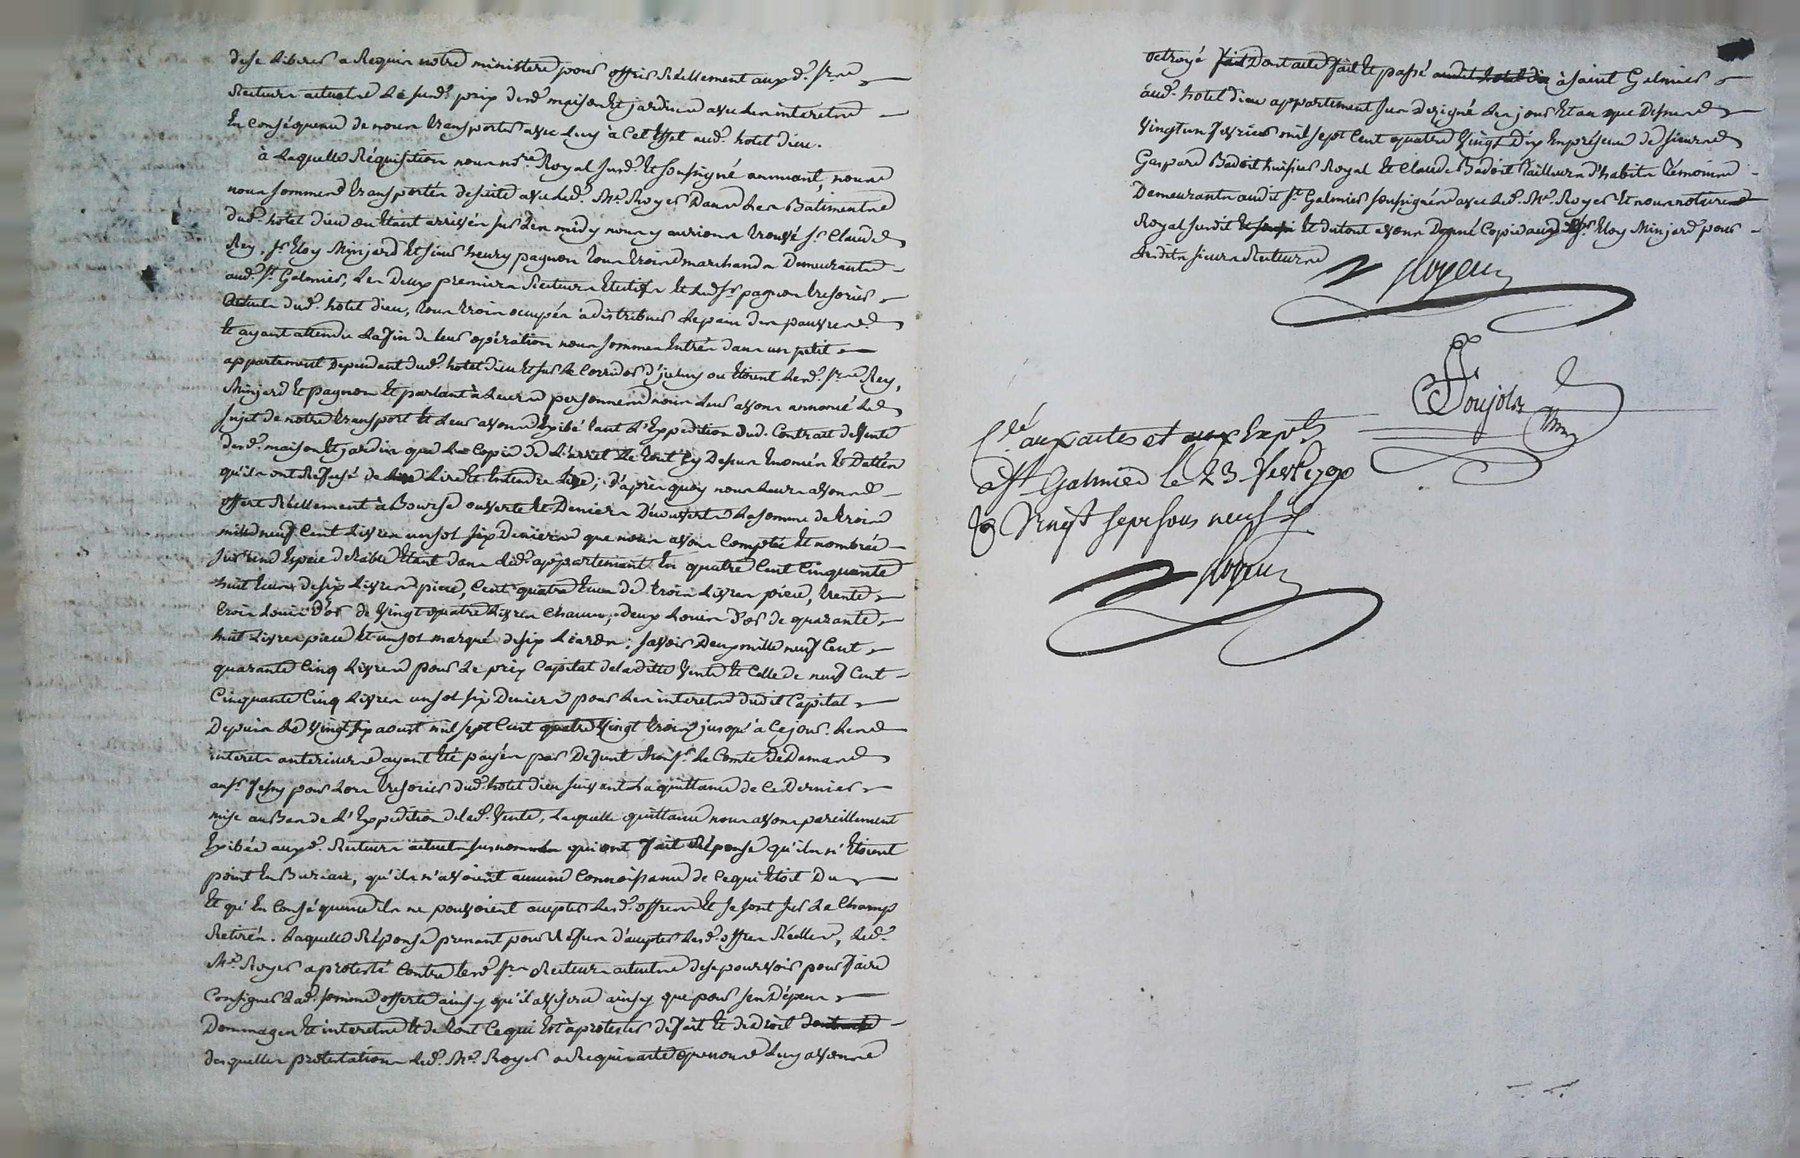 de se liberer a Requis notre ministere pour offrir Réellement auxd. Srs
Recteurs actuels le susd. prix desd. maison et jardin avec les interets
En Conséquence de nous transporter avec luy à Cet Effet aud. hotel dieu.
à laquelle Réquisition nous nre Royal susd. et soussigné annuant, nous
nous sommes transportés de suite avec led. Me. Royer Dans les Batiments
dud. hotel dieu ou Etant arrivés sur les midy nous y aurions trouvé Sr. Claude
Rey, Sr Eloy Minjard et sieur heury pagnon tous trois marchands Demeurants
aud. St. Galmier, les deux premiers Recteurs et led. Sr. pagnon tresorier
dud. hotel dieu, tous trois occupés à distribuer le pain des pauvres
Et ayant attendu la fin de leur opération nous sommes Entrés dans un petit
appartement Dependant dud. hotel dieu et sur le Corridor d'iceluy ou Etoient lesd. Srs Rey,
Minjard et pagnon et parlant à leurs personnes nous leur avons annoncé le
sujet de notre transport et leur avons Exibé tant l'Expedition dud. Contrat de Vente
desd. maison et jardin que la Copie de l'arret le tout cy Dessus Enoncés et Dattés
qu'ils ont Refusé de Lire et Entendre Lire; d'après quoy nous leurs avons
offert Réellement à Bourse ouverte et Deniers Découverts la somme de trois
mille neuf Cent Livres un sol six Deniers que nous avons Comptée et nombrée
sur une Espece de table Etant dans led. appartement En quatre Cent Cinquante
huit Ecus de six Livres piece, Cent quatre Ecus de trois Livres piece, trente
trois Louis D'or de Vingt quatre Livres chacun, deux Louis D'or de quarante
huit Livres piece et un sol marqué de six Liards; savoir Deux mille neuf Cent
quarante Cinq Livres pour le prix Capital de la ditte Vente et Celle de neuf Cent
Cinquante Cinq Livres un sol six Deniers pour les interets dudit Capital
Depuis le Vingt six aoust mil sept Cent quatre Vingt trois jusqu'à Ce jour. Les
interets anterieurs ayant Eté payés par Defunt Monsr. le Comte De Damas
au Sr. pour lors tresorier dud. hotel dieu suivant la quittance de Ce Dernier
mise au Bas de l'Expedition de lad. Vente, laquelle quittance nous avons pareillement
Exibée auxd. Recteurs actuels susnommés qui ont fait Réponse qu'ils n'Etoient
point En Bureau, qu'ils n'avoient aucune Connoissance de Ce qui Etoit Du
Et qu'En Conséquence ils ne pouvoient accepter lesd. offres Et se sont sur le Champ
Retirés. Laquelle Réponse prenant pour Refus d'accepter lesd. offres Réelles, led.
Me. Royer a protesté Contre lesd. Srs Recteurs actuels de se pourvoir pour faire
Consigner lad. somme offerte ainsy qu'il avisera ainsy que pour ses Dépens
Dommages et interets et de tout Ce qui Est à protester de fait Et de Droit
desquelles protestations led. Me. Royer a Requis acte que nous luy avons
octroyé Dont acte fait Et passé à Saint Galmier
aud. hotel dieu appartement sus designé les jour Et an que Dessus
Vingt un fevrier mil sept Cent quatre Vingt Dix En présence de sieurs
Gaspard Badoit huissier Royal Et Claude Badoit Tailleur d'habits Témoins
Demeurants audit St. Galmier soussignés avec led. Me. Royer Et nous notaire
Royal susdit Et du tout avons Donné Copie aud. Sr. Eloy Minjard pour
lesdits sieurs Recteurs
Royer
Ponjols
Clé aux actes et Expts
à St Galmier le 23 fevr. 1790
Vingt sept sous neuf d
Royer